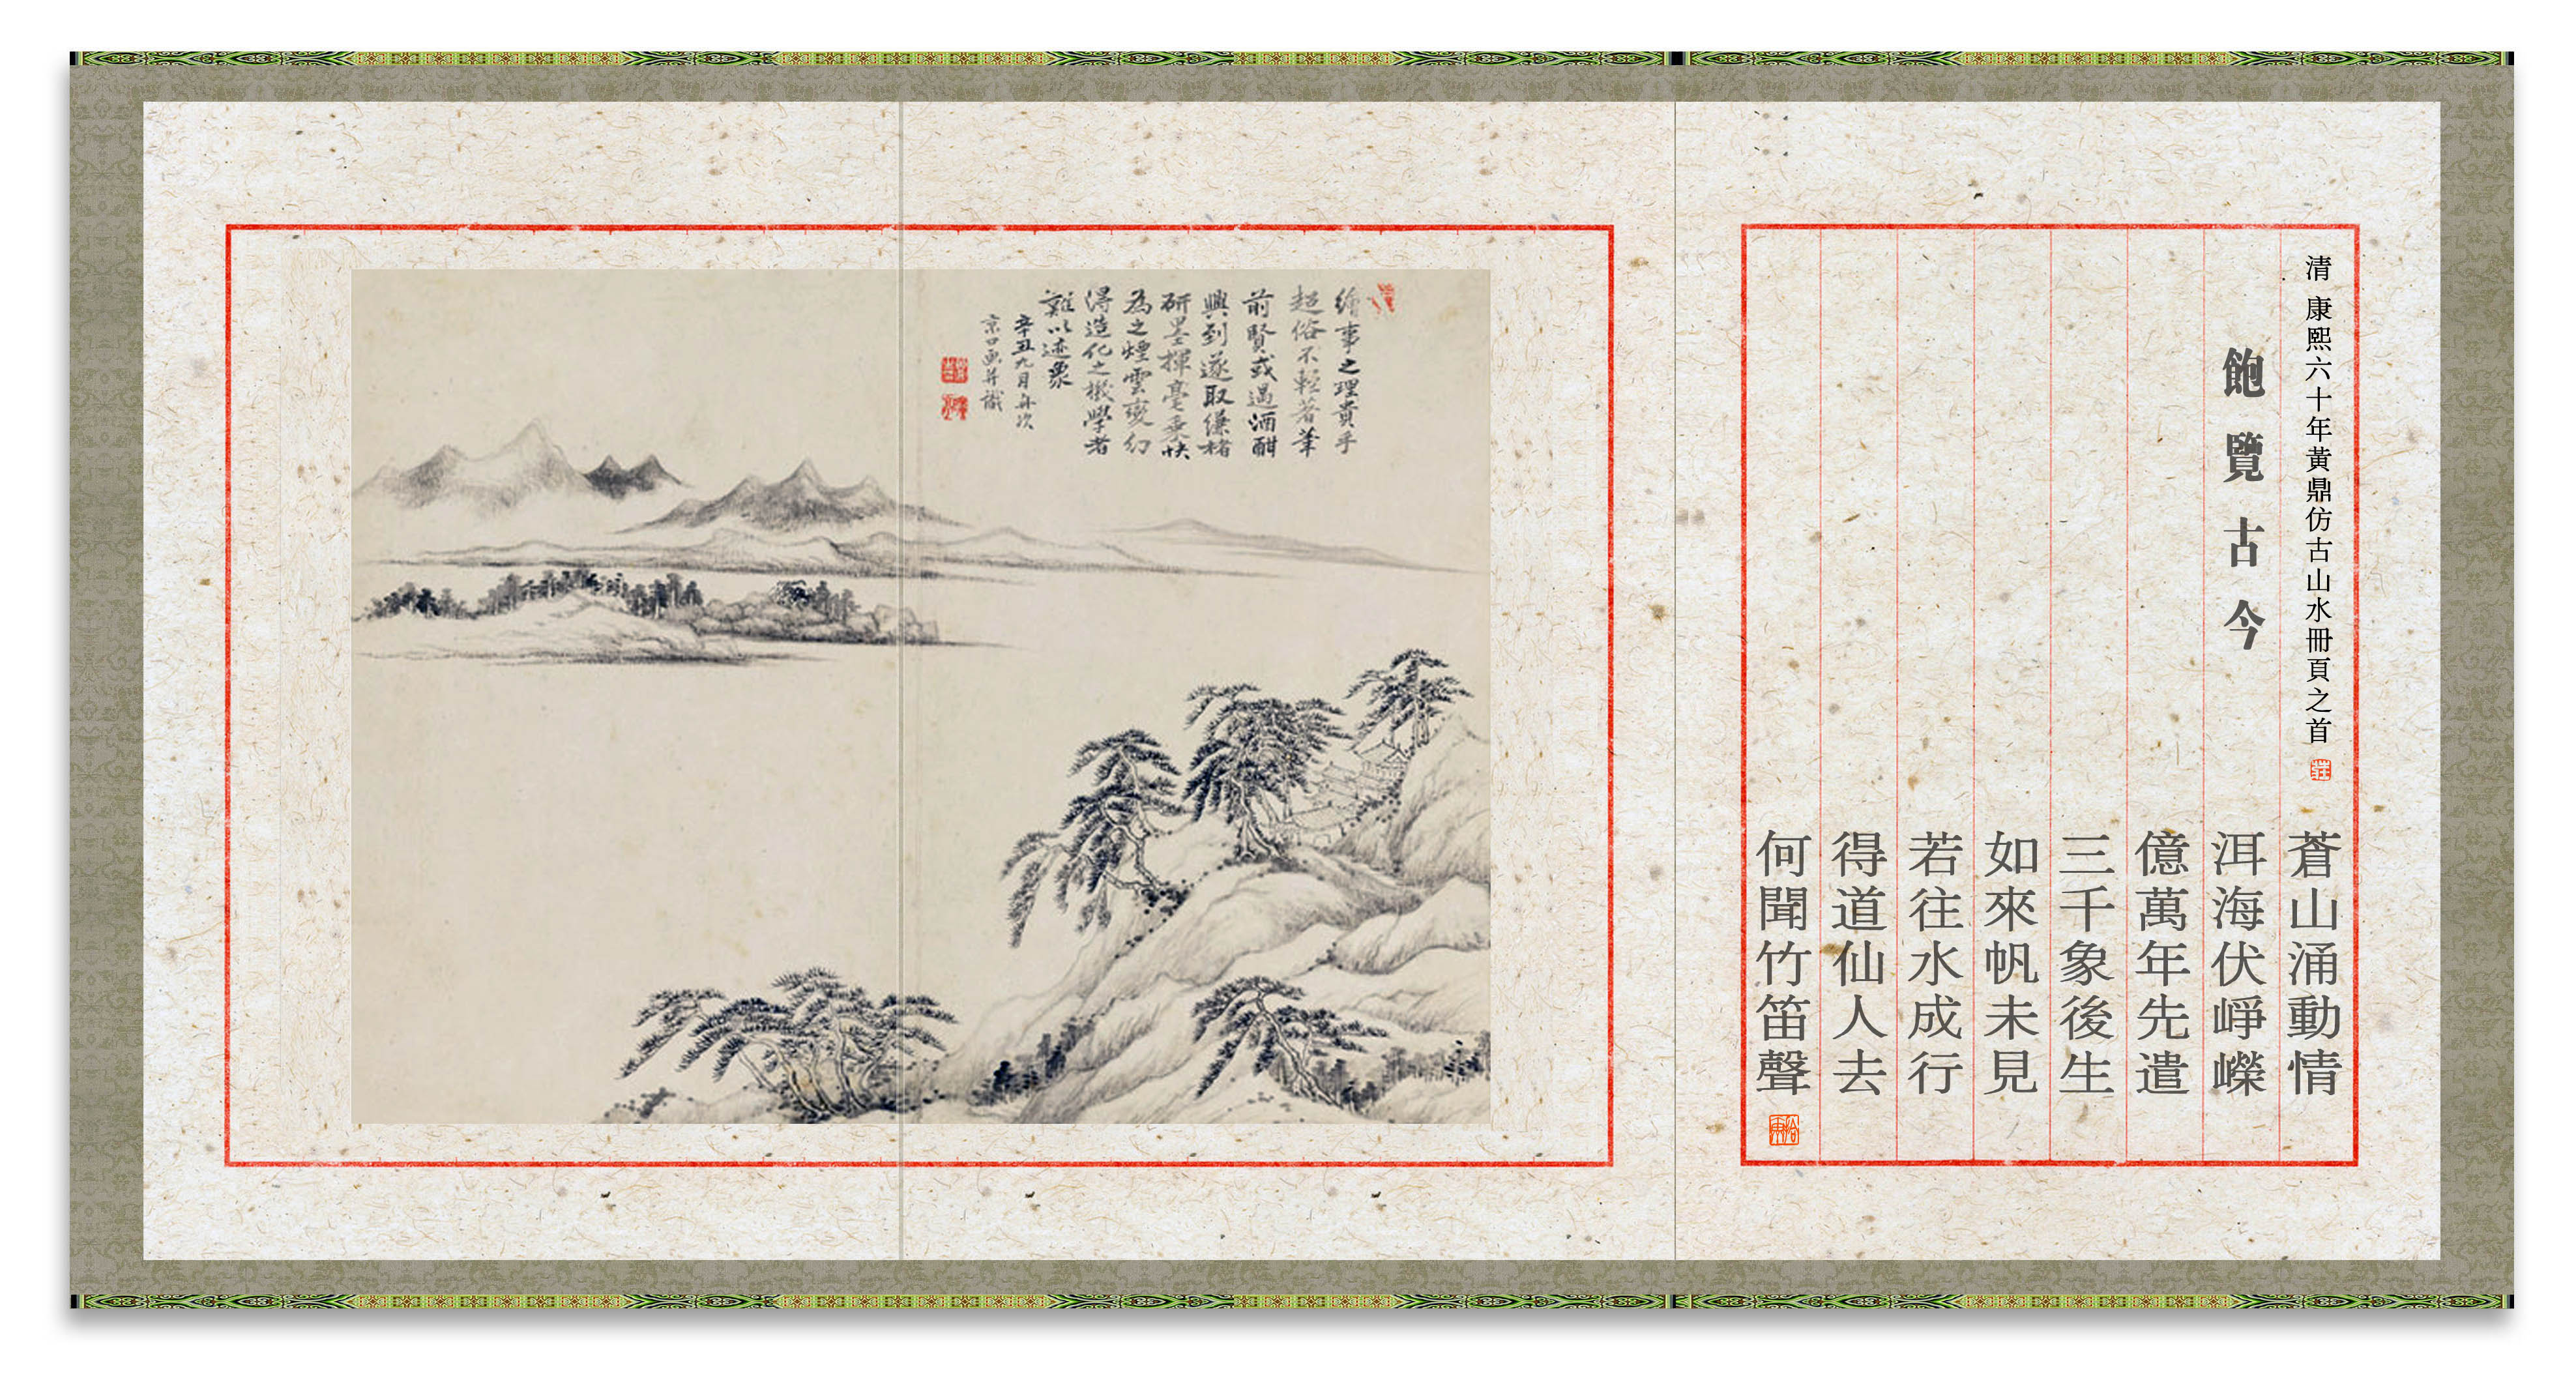 清 康熙六十年黃鼎仿古山水冊頁之首
飽覽古今
蒼山涌動情
洱海伏崢嶸
億萬年先遣
三千象後生
如來帆未見
若往水成行
得道仙人去
何聞竹笛聲
繪事之理貴乎
超俗不輕著筆
前賢或遇酒酣
興到遂取縑楮
研墨揮毫乘快
為之煙雲變幻
得造化之機學者
難以迹象
辛丑九月舟次
京口画并識